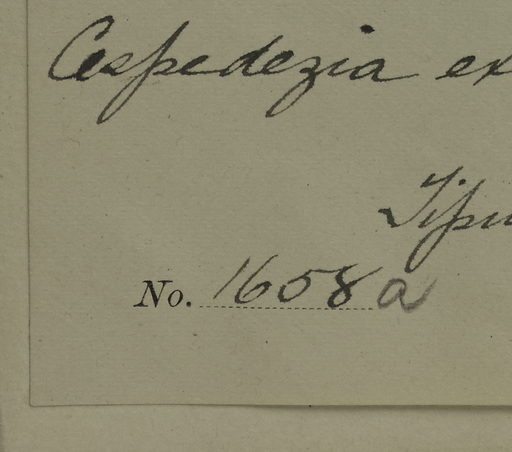 Cespedezia ex
Tipu
No. 1658a